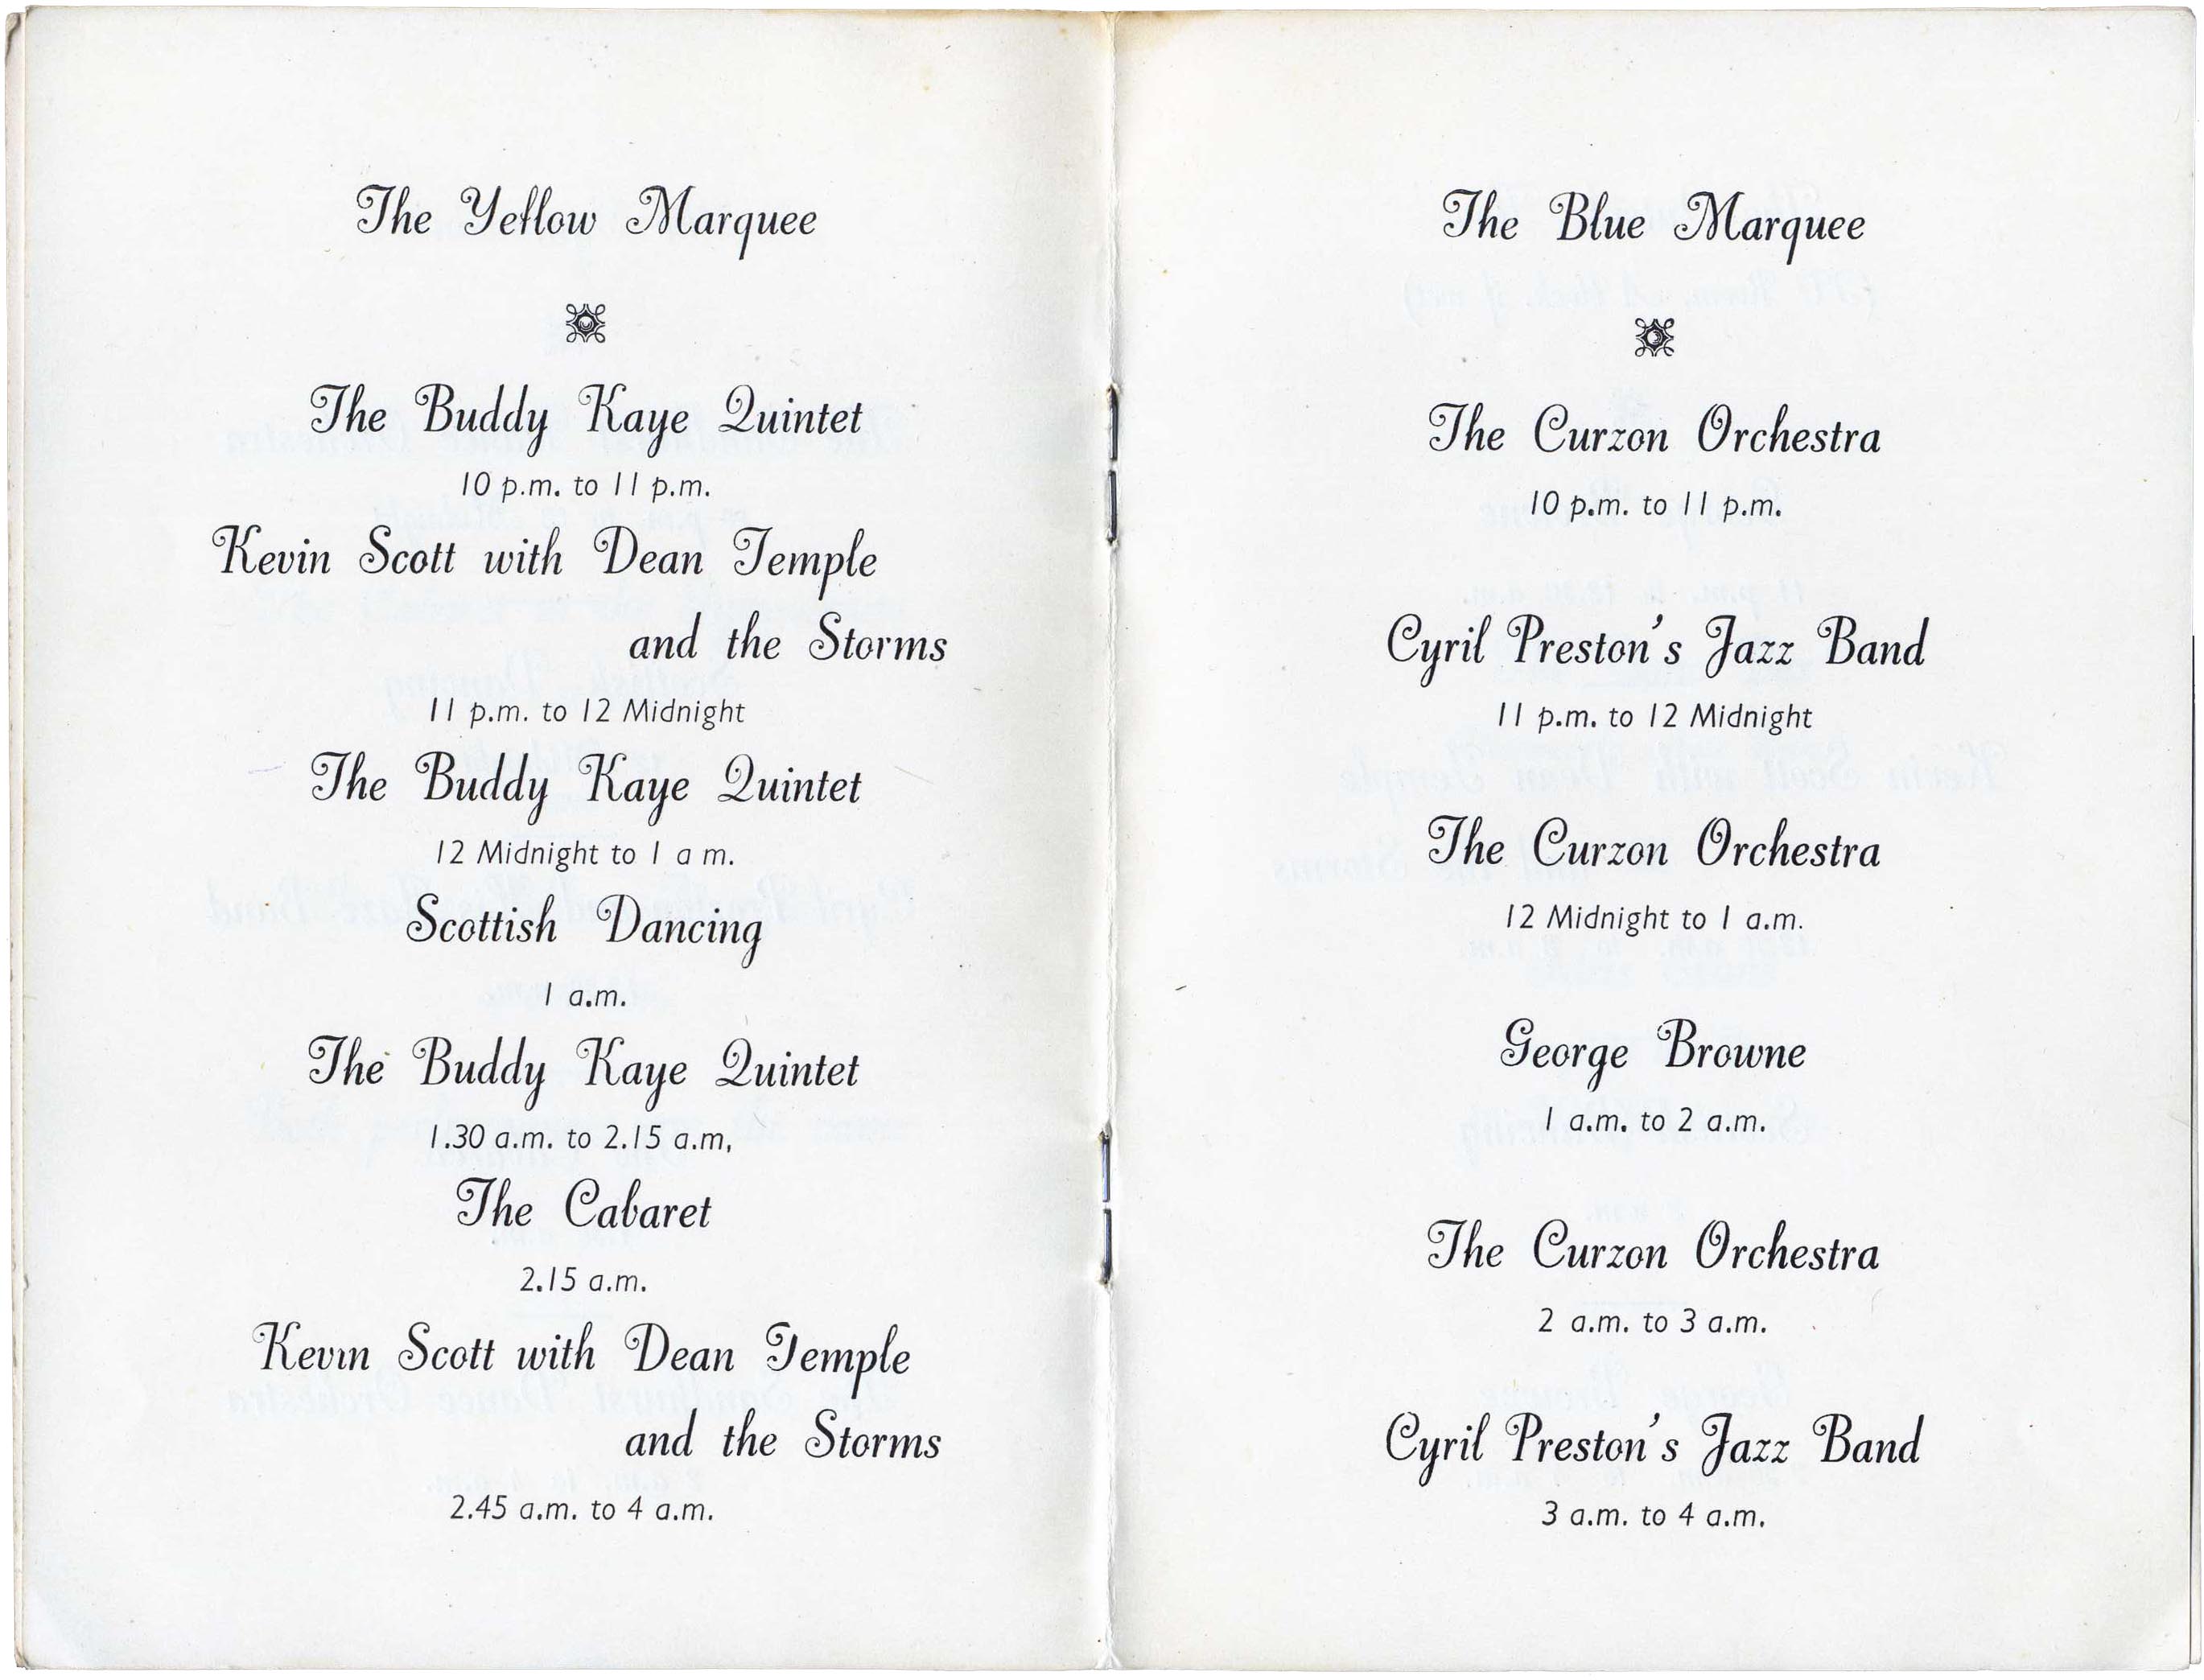 The Yellow Marquee
The Buddy Kaye Quintet
10 p.m. to 11 p.m.
Kevin Scott with Dean Temple
and the Storms
11 p.m. to 12 Midnight
The Buddy Kaye Quintet
12 Midnight to 1 a m.
Scottish Dancing
1 a.m.
The Buddy Kaye Quintet
1.30 a.m. to 2.15 a.m,
The Cabaret
2.15 a.m.
Kevin Scott with Dean Temple
and the Storms
2.45 a.m. to 4 a.m.
The Blue Marquee
The Curzon Orchestra
10 p.m. to 11 p.m.
Cyril Preston's Jazz Band
11 p.m. to 12 Midnight
The Curzon Orchestra
12 Midnight to 1 a.m.
George Browne
1 a.m. to 2 a.m.
The Curzon Orchestra
2 a.m. to 3 a.m.
Cyril Preston's Jazz Band
3 a.m. to 4 a.m.